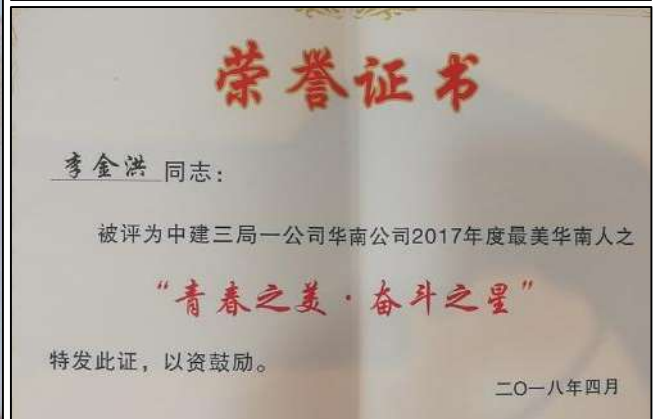 荣誉证书
李金洪 同志：
被评为中建三局一公司华南公司2017年度最美华南人之
“青春之美·奋斗之星”
特发此证，以资鼓励。
二〇一八年四月